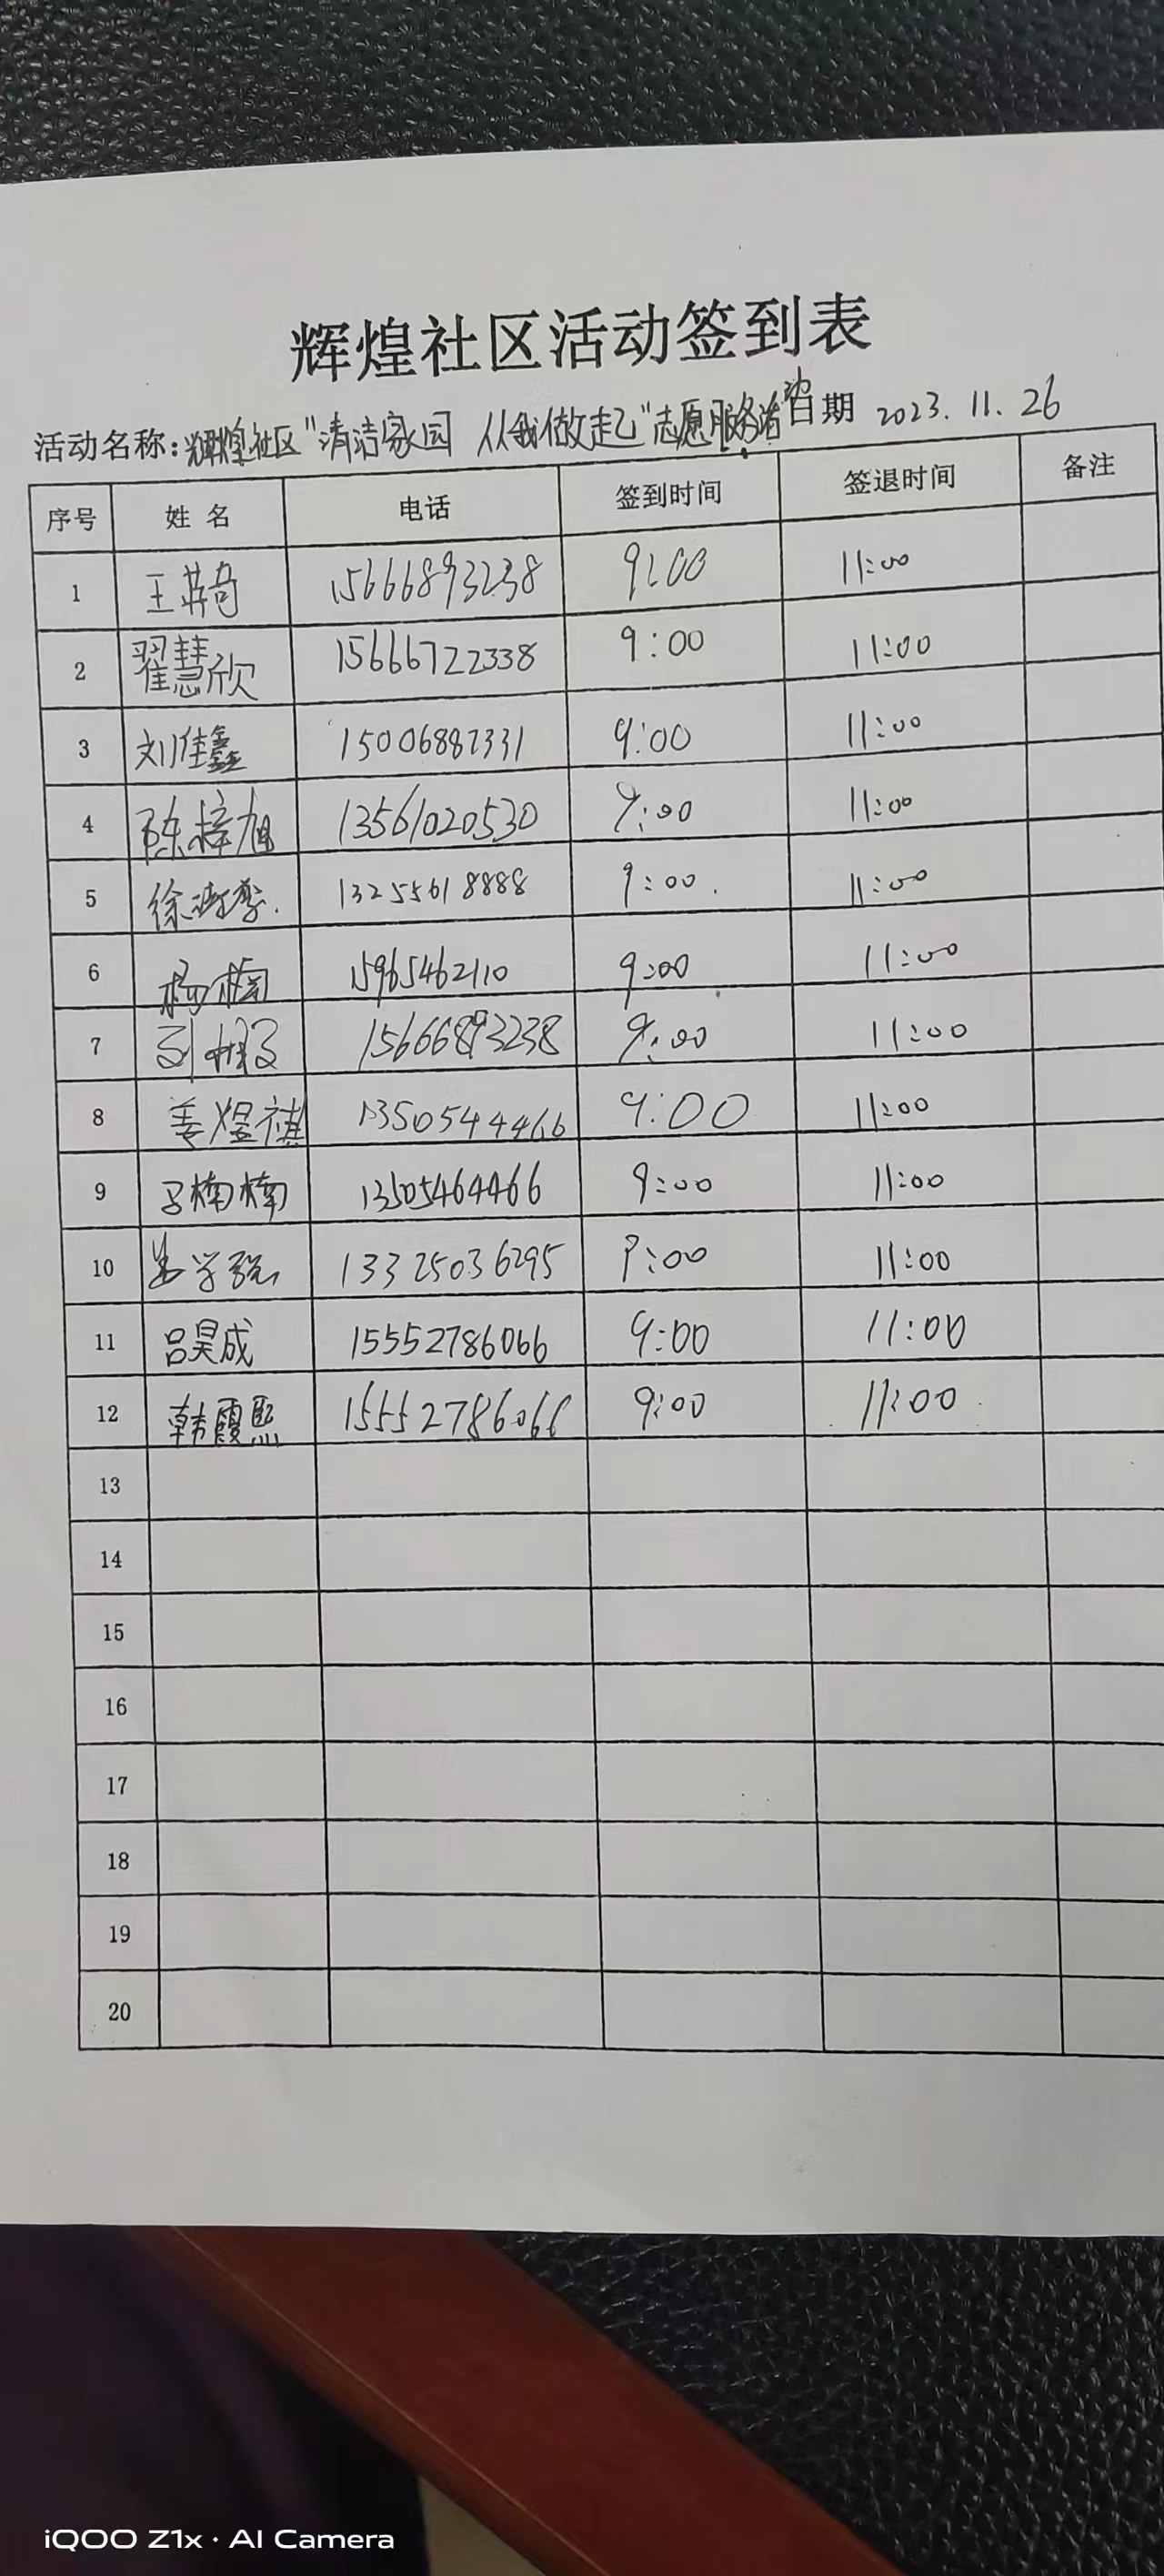 辉煌社区活动签到表
活动名称:辉煌社区"清洁家园 从我做起"志愿服务活动 日期 2023.11.26
序号 姓名 电话 签到时间 签退时间 备注
1 王 奇 15666893238 9:00 11:00
2 翟慧欣 15666722338 9:00 11:00
3 刘佳鑫 15006887331 9:00 11:00
4 陈梓旭 13561020530 9:00 11:00
5 徐 13255618888 9:00 11:00
6 杨楠 15965462110 9:00 11:00
7 15666893238 9:00 11:00
8 姜煜祺 13505444466 9:00 11:00
9 楠楠 13505464466 9:00 11:00
10 13325036295 9:00 11:00
11 吕昊成 15552786066 9:00 11:00
12 韩霞熙 15552786066 9:00 11:00
13
14
15
16
17
18
19
20
iQOO Z1x · AI Camera